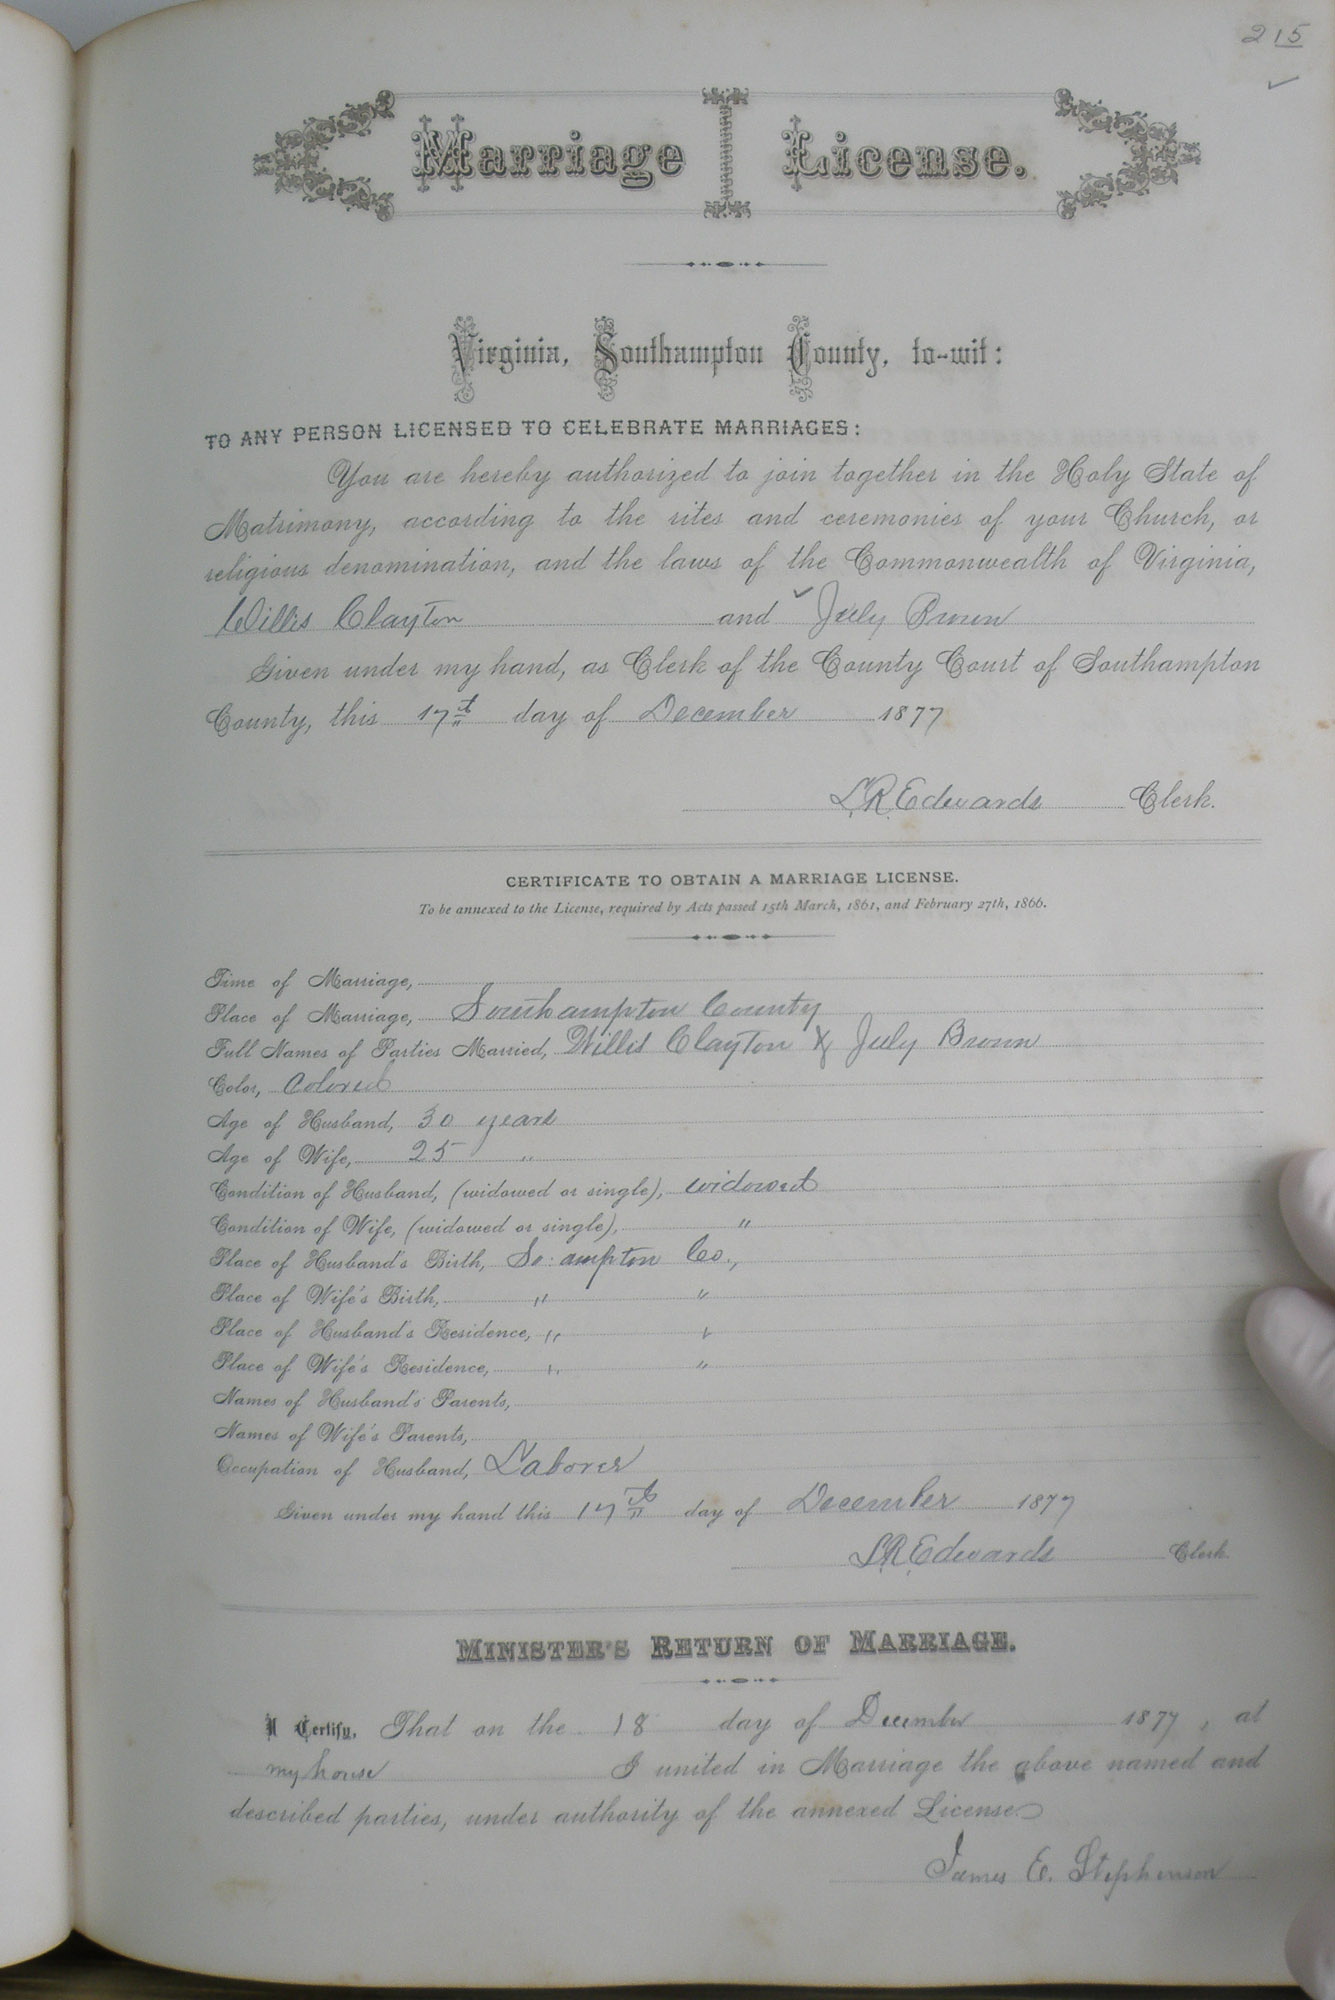 215
Marriage License.
Virginia, Southampton County, to-wit:
TO ANY PERSON LICENSED TO CELEBRATE MARRIAGES:
You are hereby authorized to join together in the Holy State of
Matrimony, according to the rites and ceremonies of your Church, or
religious denomination, and the laws of the Commonwealth of Virginia,
Willis Clayton and July Brown
Given under my hand, as Clerk of the County Court of Southampton
County, this 17th day of December 1877
L.R. Edwards Clerk.
CERTIFICATE TO OBTAIN A MARRIAGE LICENSE.
To be annexed to the License, required by Acts passed 15th March, 1861, and February 27th, 1866.
Time of Marriage,
Place of Marriage, Southampton County
Full Names of Parties Married, Willis Clayton & July Brown
Color, Colored
Age of Husband, 30 years
Age of Wife, 25 "
Condition of Husband, (widowed or single), widowed
Condition of Wife, (widowed or single), "
Place of Husband's Birth, So:ampton Co.,
Place of Wife's Birth, " "
Place of Husband's Residence, " "
Place of Wife's Residence, " "
Names of Husband's Parents,
Names of Wife's Parents,
Occupation of Husband, Laborer
Given under my hand this 17th day of December 1877
L.R. Edwards Clerk
MINISTER'S RETURN OF MARRIAGE.
I Certify, That on the 18 day of December 1877, at
my house I united in Marriage the above named and
described parties, under authority of the annexed License
James E. Stephenson